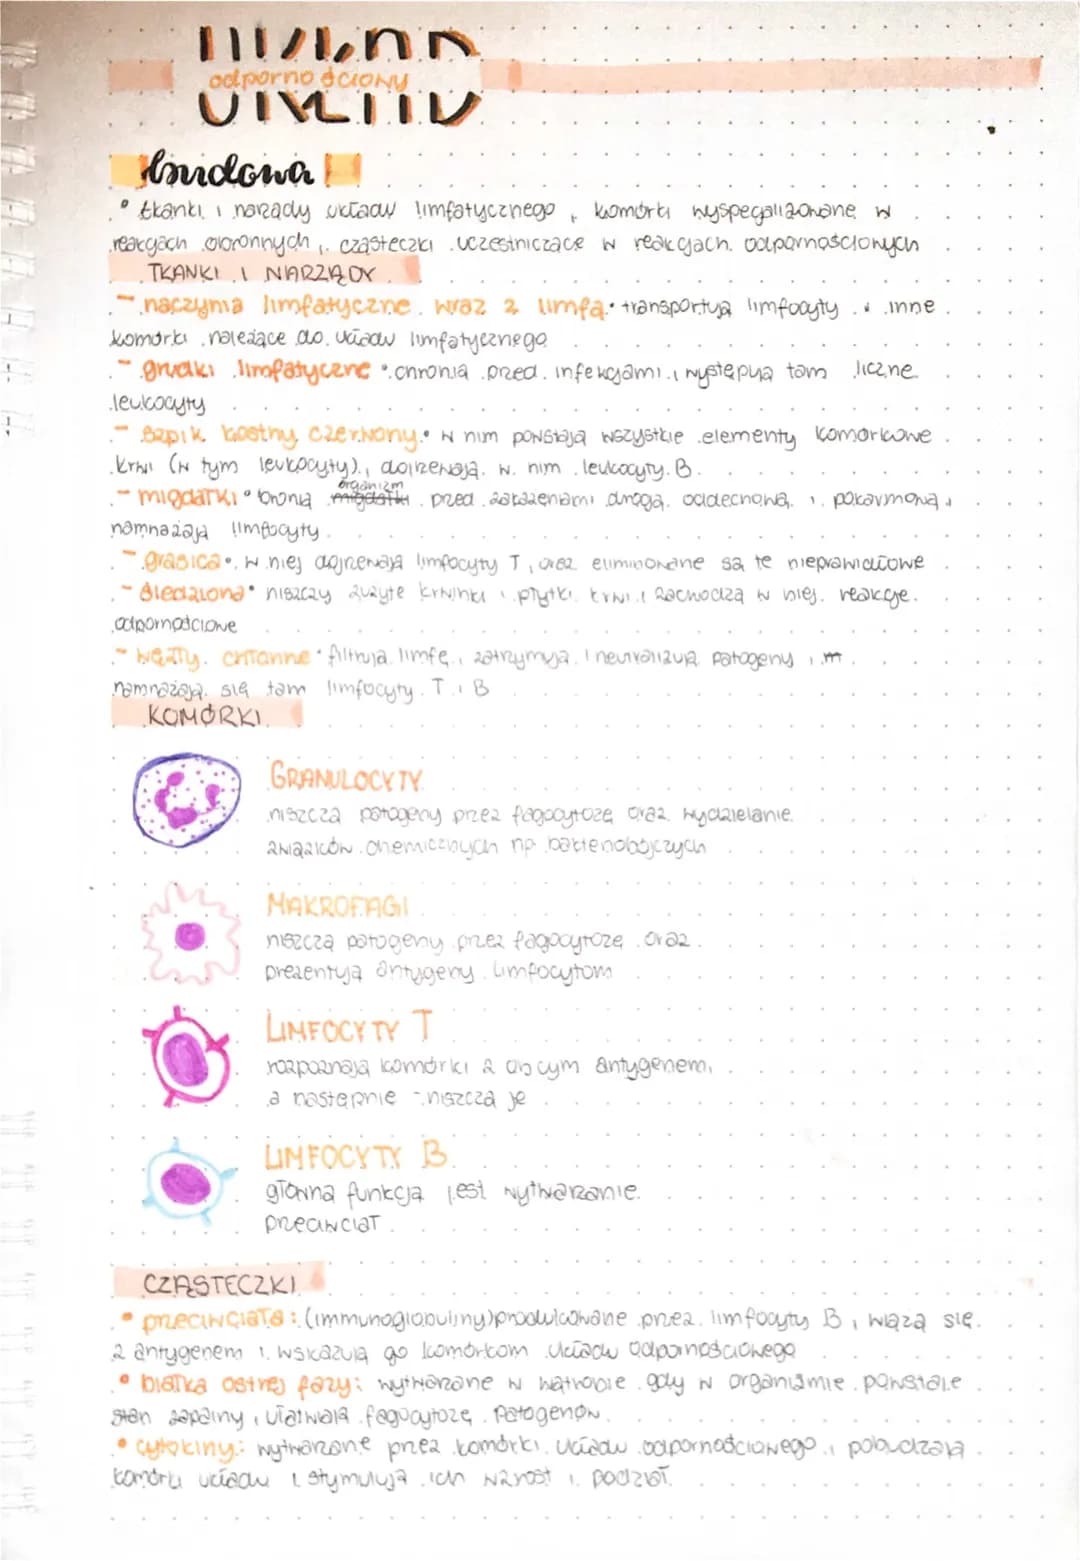 UKŁAD
odpornościowy
budowa
• tkanki i narządy układu limfatycznego, komórki wyspecjalizowane w
reakcjach obronnych, cząsteczki uczestniczące w reakcjach odpornościowych
TKANKI I NARZĄDY
- naczynia limfatyczne wraz z limfą • transportują limfocyty i inne
komórki należące do układu limfatycznego
- grudki limfatyczne • chronią przed infekcjami, występują tam liczne
leukocyty
- szpik kostny czerwony • w nim powstają wszystkie elementy komórkowe
krwi (w tym leukocyty), dojrzewają w nim leukocyty B
- migdałki • bronią organizm przed zakażeniami drogą oddechową i pokarmową,
namnażają limfocyty
- grasica • w niej dojrzewają limfocyty T, oraz eliminowane są te nieprawidłowe
- śledziona • niszczy zużyte krwinki i płytki krwi i zachodzą w niej reakcje
odpornościowe
- węzły chłonne • filtrują limfę, zatrzymują i neutralizują patogeny i
namnażają się tam limfocyty T i B
KOMÓRKI
GRANULOCYTY
niszczą patogeny przez fagocytozę oraz wydzielanie
związków chemicznych np bakteriobójczych
MAKROFAGI
niszczą patogeny przez fagocytozę oraz
prezentują antygeny limfocytom
LIMFOCYTY T
rozpoznają komórki z obcym antygenem,
a następnie niszczą je
LIMFOCYTY B
główna funkcja jest wytwarzanie
przeciwciał
CZĄSTECZKI
• przeciwciała: (immunoglobuliny) produkowane przez limfocyty B, wiążą się
z antygenem i wskazują go komórkom układu odpornościowego
• białka ostrej fazy: wytwarzane w wątrobie gdy w organizmie powstaje
stan zapalny, ułatwiają fagocytozę patogenów
• cytokiny: wytwarzane przez komórki układu odpornościowego, pobudzają
komórki układu i stymulują ich wzrost i podział.